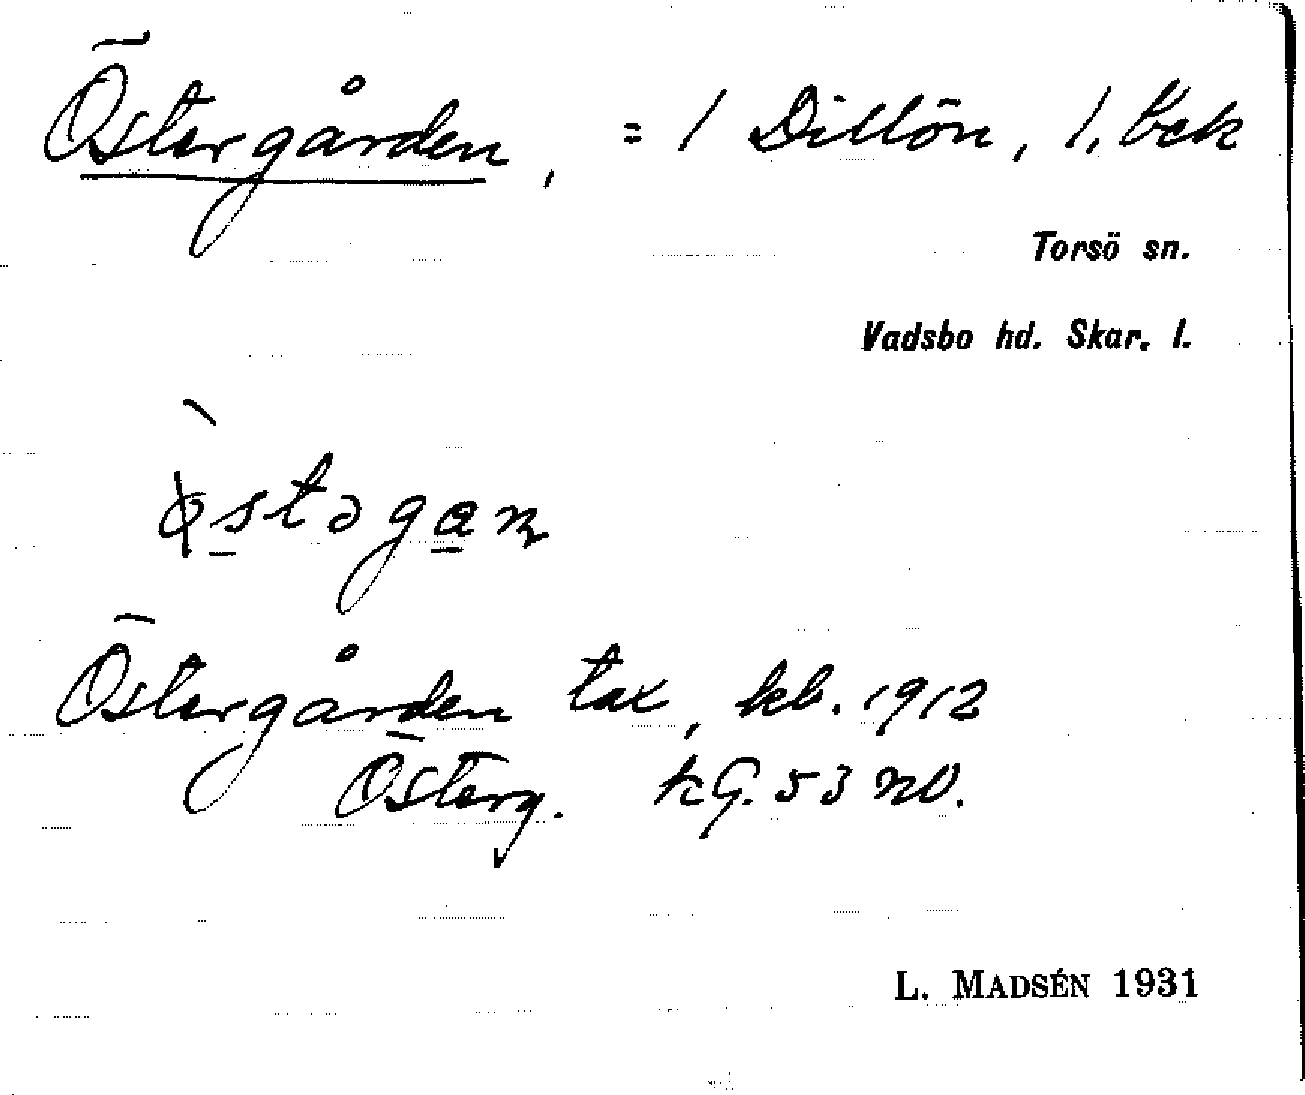 Östergården, = 1 Dillön, 1, bek
Torsö sn.
Vadsbo hd. Skar. l.
Östergården tax, kb. 1912
Österg. kG. 53 NO.
L. MADSÉN 1931